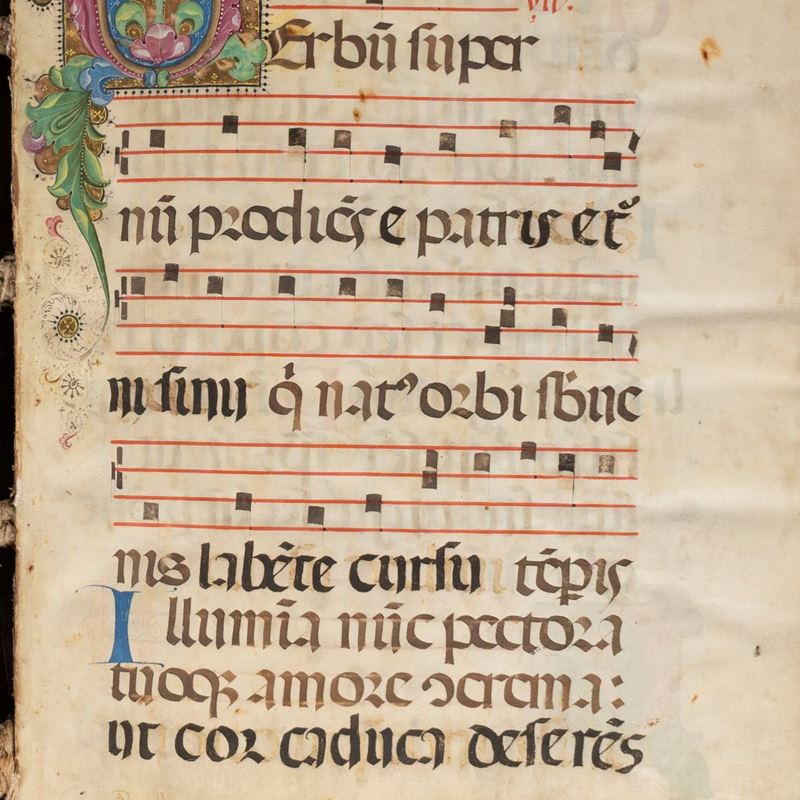 VErbū super
nū prodiēs e patris et̄
ni sinu q̇ nat᾽ orbi sb̄ue
nis labēte cursu tēp̱is
Illumīa nūc pectora
tuoqꝫ amore ↄcrema:
ut cor caduca deserēs